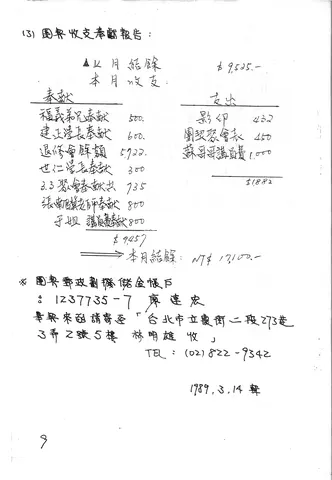 (3) 團契收支奉獻報告：
▲上月結餘 $9,525.-
本月收支
奉献 支出
福義弟兄奉献 500. 影印 432
建立學長奉献 600. 團契聚會表 450
退修會餘額 5922. 蘇哥哥講員費 1,000
世仁學長奉献 300 $1882
3.3聚會奉献 735
老師奉献 800
講員奉献 800
$9,457
本月結餘: NT$ 17,100.-
※ 團契郵政劃撥儲金帳戶
: 1237735-7 廖達宏
畢契來函請寄至「台北市立農街二段273巷
3弄2號5樓 林明雄 收」
TEL: (02)822-9342
1989.3.14 輯
9